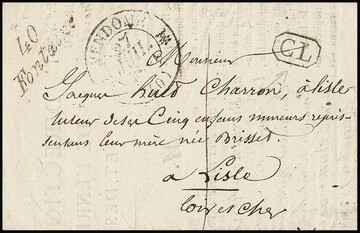 40
Fontaine
VENDOME
CL
Monsieur
Jacques Huld Charron, à Lisle
tuteur de ses Cinq enfans mineurs repré-
sentans leur mère née Brisset.
à Lisle
Loir et Cher